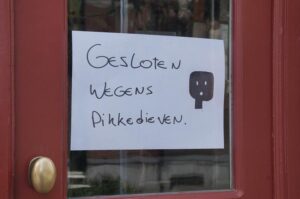 Gesloten
wegens
Pikkedieven.